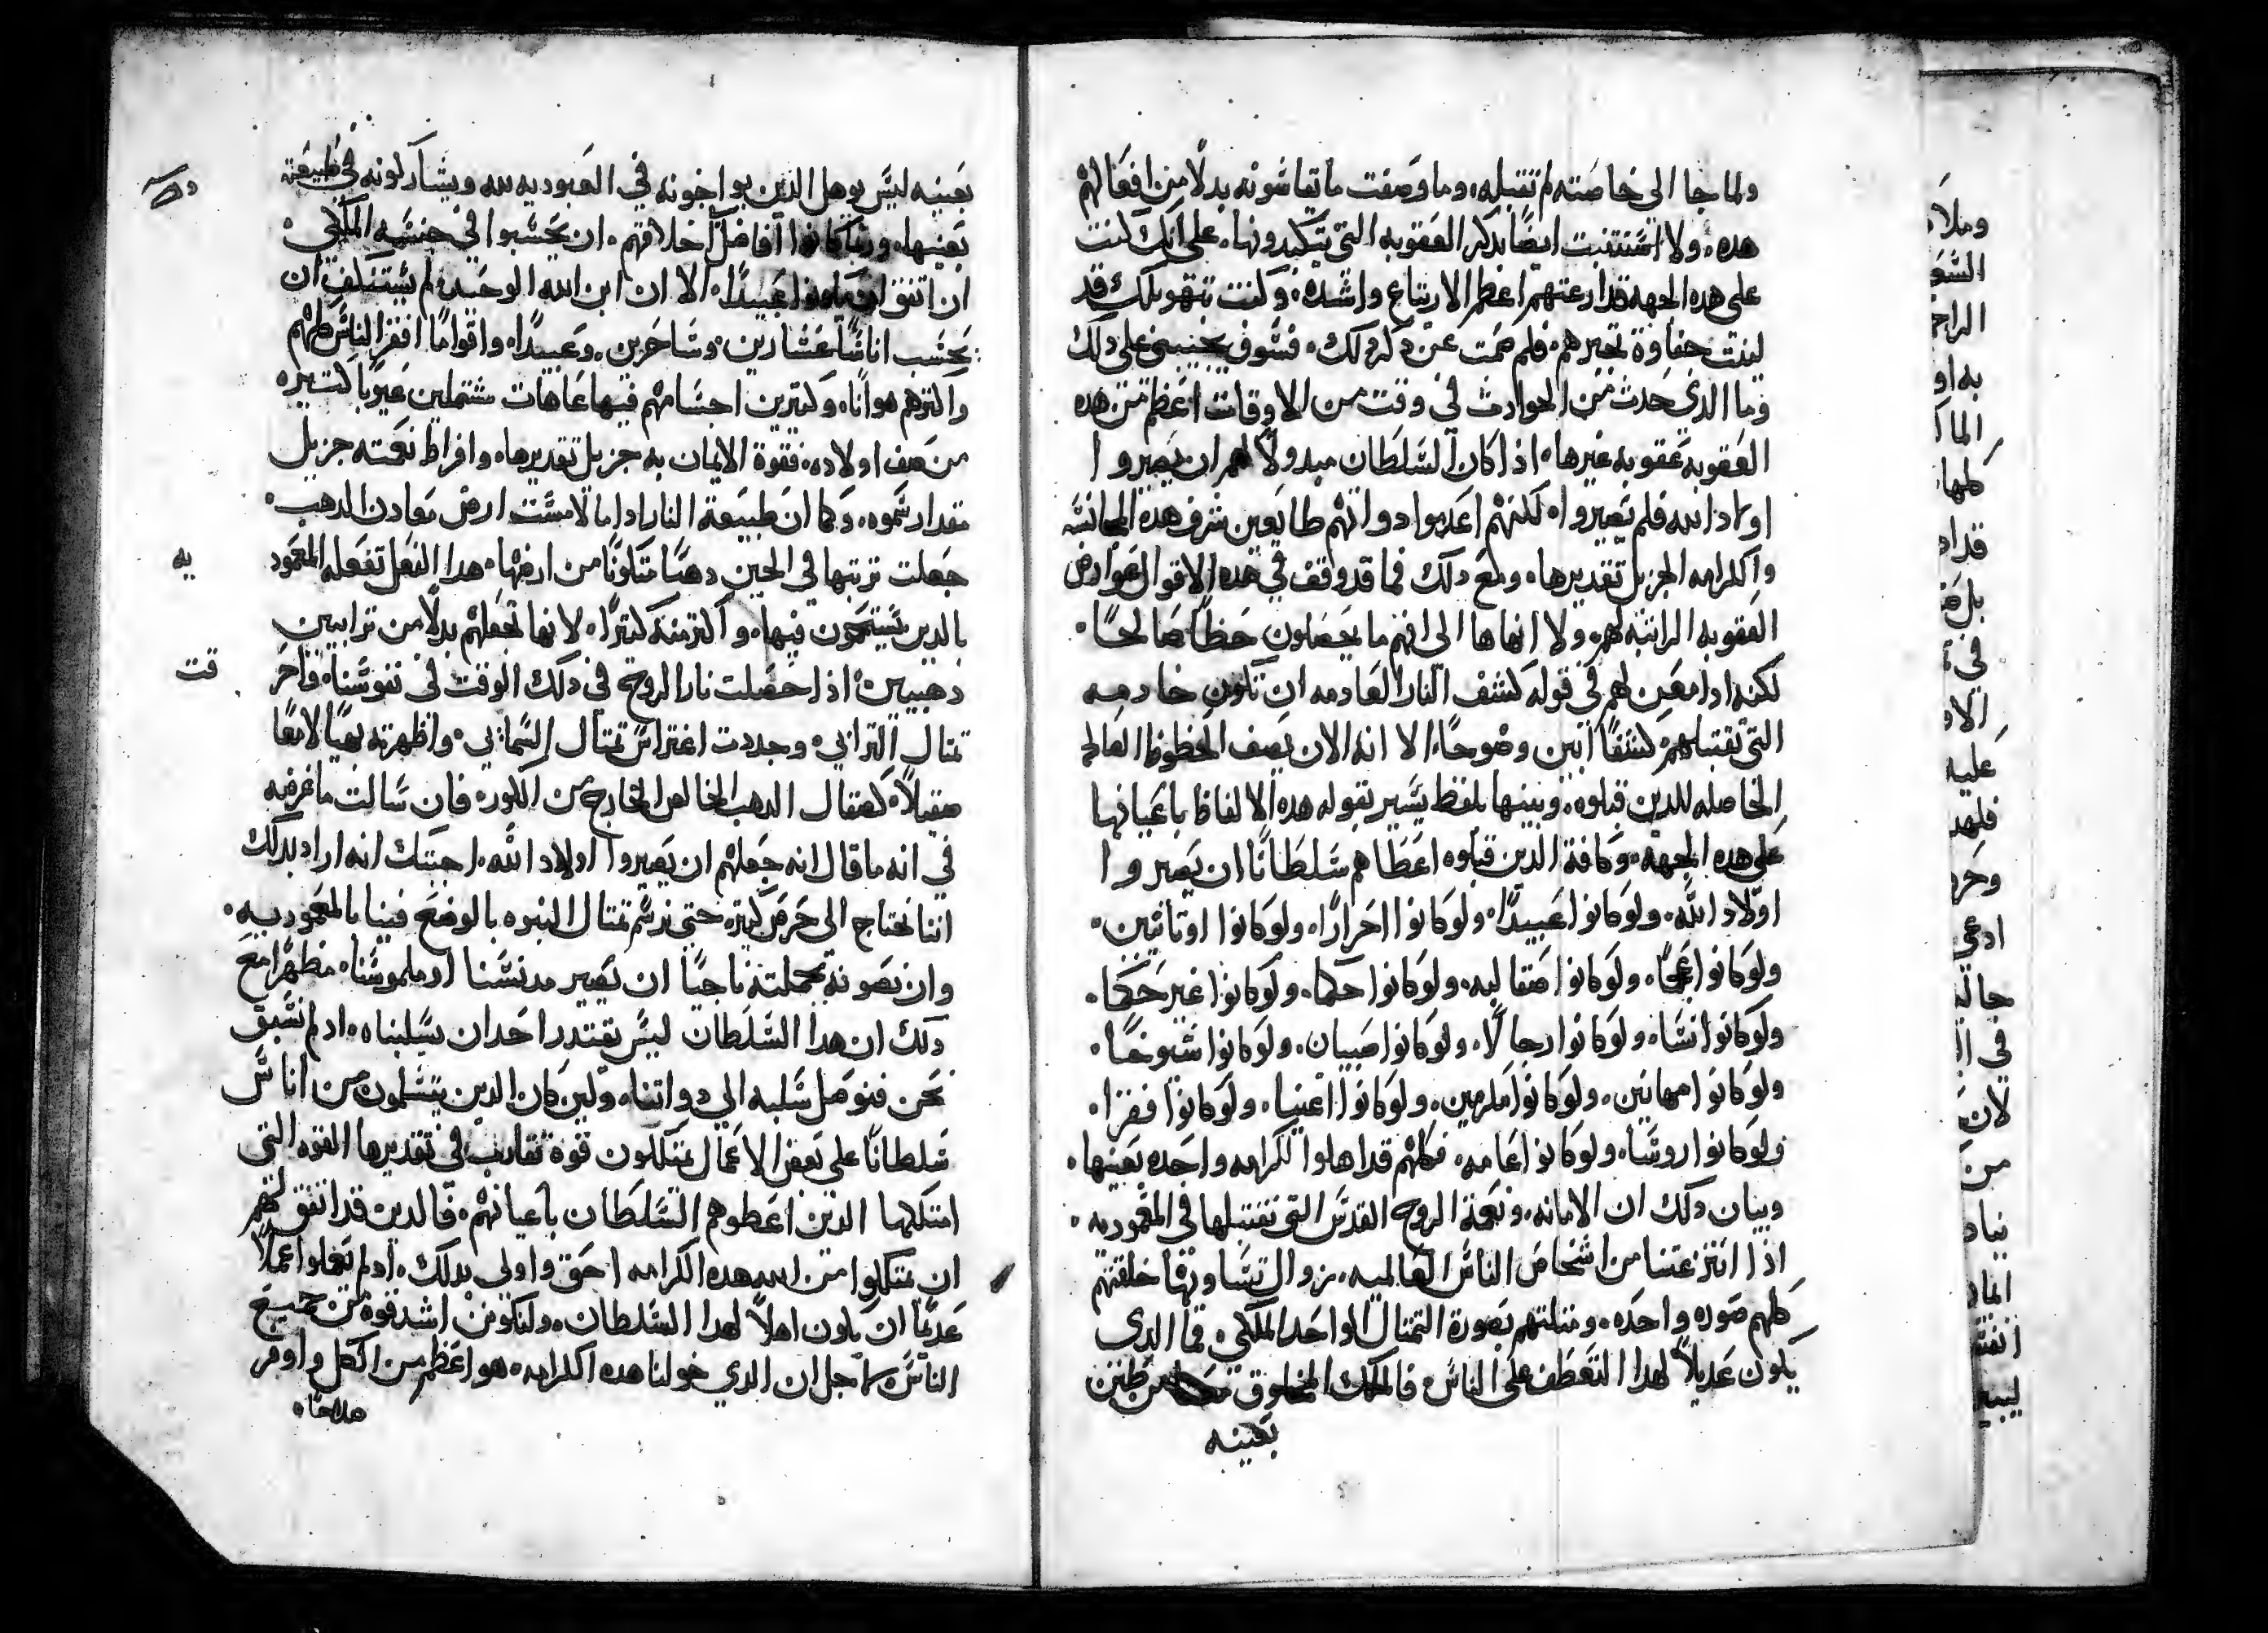 ولما جا الى خاصته لم تقبله، وما وصفت ما يقاسونه بدلاً من افعالهم
هده، ولا استتنيت ايضاً بدكر العقوبه التي يتكبدونها، على انك كنت
على هده الجهه قد ارعتهم اعظم الارتياع واشده، وكنت بتهويلك قد
لينت جفاوة تجبرهم، فلم صمت عن دكر دلك، فسوف يجيبني على دلك
وما الدي حدث من الحوادث في وقت من الاوقات اعظم من هده
العقوبه عقوبه غيرها، اذا كان السلطان مبدولاً لهم ان يصيروا
اولاد الله فلم يصيروا، لكنهم اعدموا دواتهم طايعين شرف هده المجانسه
واكرامه الجزيل تقديرها، ومع دلك فما قد وقف في هده الاقوال عوارض
العقوبه الراتبه لهم، ولا انهاها الى انهم ما يحصلون حظاً صالحاً،
لكنه ادا معن لهم في قوله كشف النار العادمه ان تكون خادمه
التي تقتبلهم كشفاً ابين وضوحاً، الا انه الان يصف الحظوظ العالم
الحاصله للدين قبلوه، وبينها بلفظ يسير بقوله هده الالفاظ باعيانها
على هده الجهه، وكافة الدين قبلوه اعطاهم سلطاناً ان يصيروا
اولاد الله، ولو كانوا عبيداً، ولو كانوا احراراً، ولو كانوا اوتانيين،
ولو كانوا عجماً، ولو كانوا صقالبه، ولو كانوا حكما، ولو كانوا غير حكما،
ولو كانوا نسا، ولو كانوا رجالاً، ولو كانوا صبيان، ولو كانوا شيوخاً،
ولو كانوا مهانين، ولو كانوا مكرمين، ولو كانوا اغنيا، ولو كانوا فقرا،
ولو كانوا روسا، ولو كانوا عامه، فكلهم قد اهلوا لكرامه واحده بعينها،
وبيان دلك ان الامانه، ونعمة الروح القدس التي نقتبلها في المعموديه،
اذا انتزعتنا من اشخاص الناس العالميه، زوال تساوتها خلقتهم
كلهم صوره واحده، ومتلتهم بصورة التمتال الواحد الملكي، فما الدي
يكون عديلاً لهدا التعطف على الناس، فالملك المخلوق من طين
بعينه
بعينه ليس يوهل الدين يواخونه في العبوديه لله ويشاركونه في طبيعته
بعينها، وربما كانوا افاضل اخلاقهم، ان يحسبوا في جنسه الملكي،
ان اتفق ان يكونوا عبيداً، الا ان ابن الله الوحيد لم يستنكف ان
يحسب اناساً عشارين، وساحرين، وعبيداً، واقواماً افقر الناس كلهم
واكترهم هواناً، وكتيرين اجسامهم فيها عاهات مشتملين عيوباً كتيره
من صف اولاده، فقوة الايمان به جزيل تقديرها، وافراط نعمته جزيل
مقدار سموه، وكما ان طبيعة النار ادا ما لامست ارض معادن الدهب،
جعلت تربتها في الحين دهباً متكوناً من ارضها، هدا الفعل تفعله المعمود
به
بالدين يستحمون فيها، واكتر منه كتيراً، لانها تجعلهم بدلاً من ترابيين
دهبيين، اذا حصلت نار الروح في دلك الوقت في نفوسنا، فاحر
قت
تمتال الترابي، وجددت اغتراس تمتال السمايي، واظهرته بهياً لامعاً
صقيلاً كصقال الدهب الخالص الخارج من الكور، فان سالت ما غرضه
في انه ما قال انه جعلهم ان يصيروا اولاد الله، اجبتك انه اراد بدلك
اننا نحتاج الى حرص كتير، حتى نرسم تمتال البنوه بالوضع فينا بالمعموديه،
وان نصونه بجملته ناجياً ان يصير مدنساً او ملموساً، مظهراً مع
دلك ان هدا السلطان ليس يقتدر احد ان يسلبناه، اد لم نسبق
نحن فنوصل سلبه الي دواتنا، ولين كان الدين يتسلمون من اناس
سلطاناً على بعض الاعمال يمتلكون قوة تقارب في تقديرها القوه التي
امتلكها الدين اعطوهم السلطان باعيانهم، فالدين قد اتفق لهم
ان يمتلكوا من الله هده الكرامه احق واولى بدلك، اد لم تعملوا عملاً
عديماً ان يكون اهلاً لهدا السلطان، ولتكونن اشد قوه من جميع
الناس، لاجل ان الدي خولنا هده الكرامه، هو اعظم من الكل واوفر
صلاحاً،